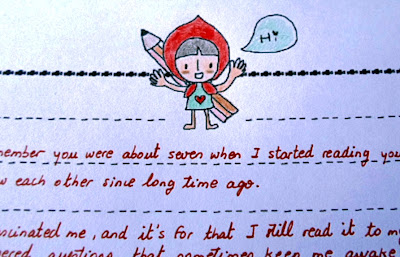 Hi
member you were about seven when I started reading you
w each other since long time ago.
cinated me, and it's for that I still read it to my
ered questions that sometimes keep me awake